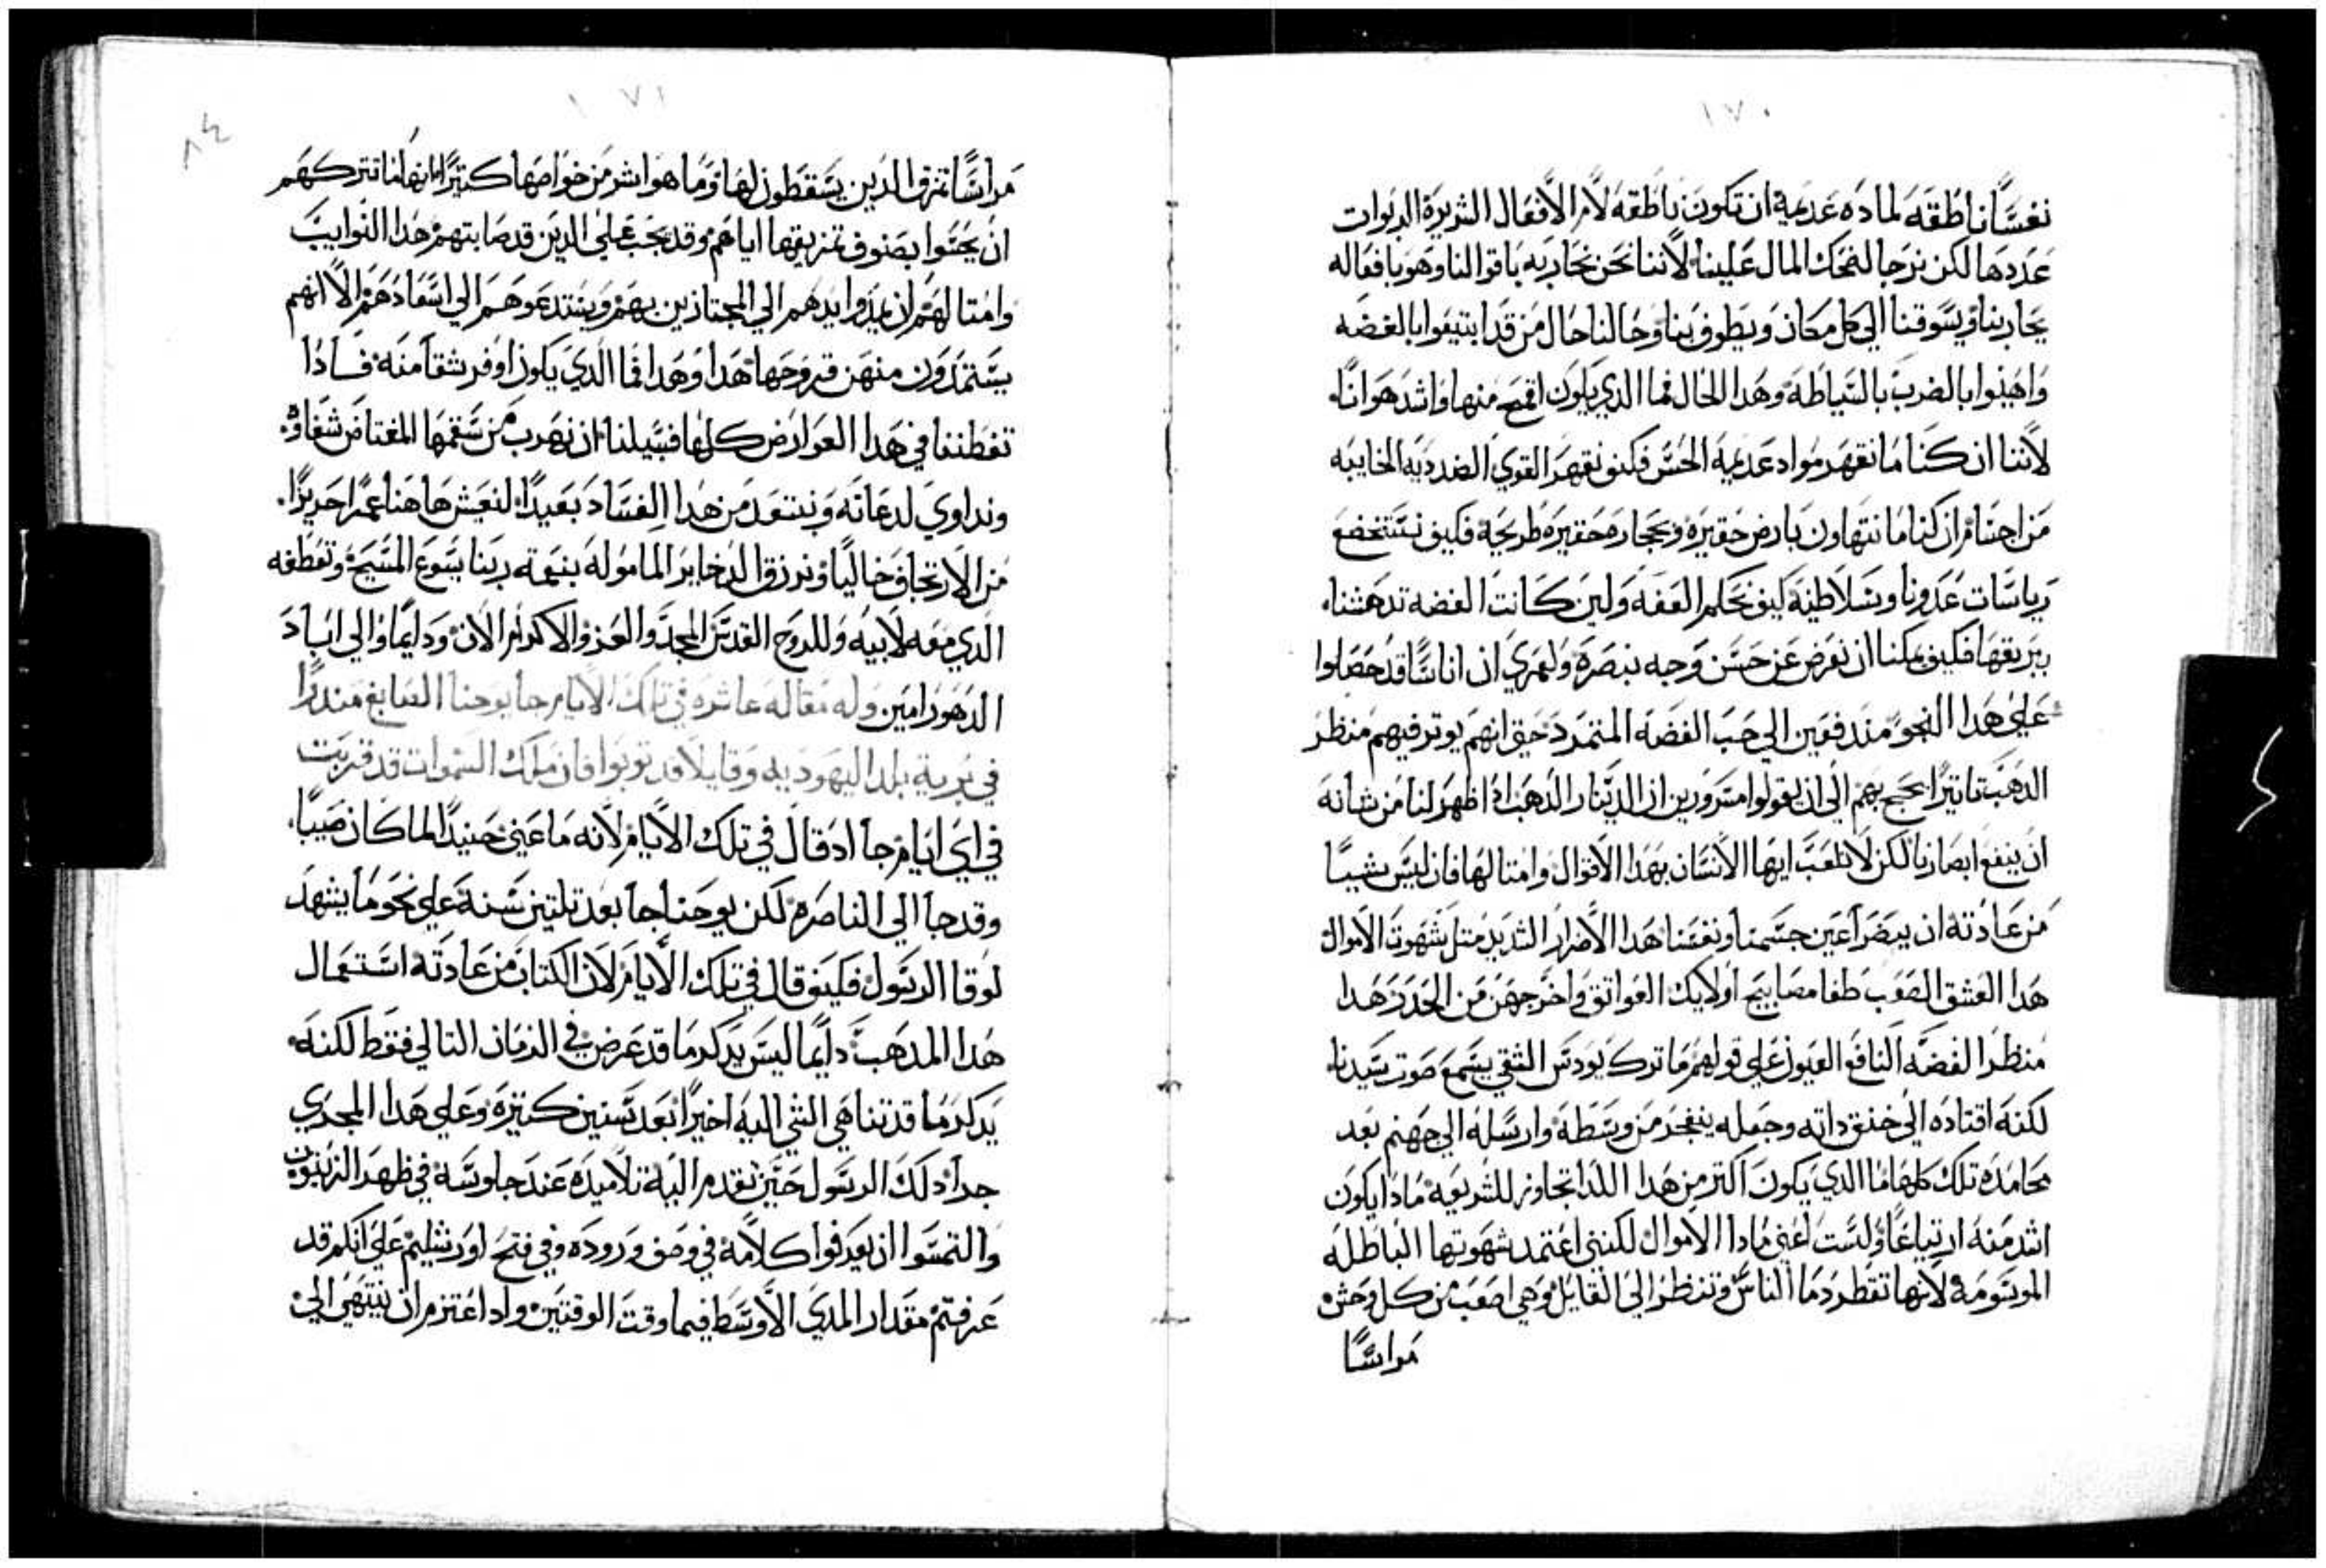 ١٧٠
نفسًا ناطقه لماده عديمة ان تكون ناطقه لامر الافعال الشريرة الديوات
عددها لكن نرجا لنحك المال علينا لاننا نحن نحاربه باقوالنا وهو بافعاله
يحاربنا ويسوقنا الي كل مكان ويطوف بنا وحالنا حال من قد ابتيعوا بالفضه
واهينوا بالضرب بالسياطه وهدا الحال فما الدي يكون اقبح منها واشد هوانًا
لاننا ان كنا ما نقهر مواد عديمة الحس فكيف نقهر القوي الضدديه الخايبه
من اجسام ان كنا ما نتهاون بارض حقيره وبحجاره حقيره طريحة فكيف نستخضع
رياسات عدونا وسلاطينه كيف نحكم العفه ولين كانت الفضه تدهشنا
ببريقها فكيف يمكنا ان نعرض عن حسن وجه نبصره ولعمري ان اناسًا قد حصلوا
علي هدا النحو مندفعين الي حب الفضه المتمرد حتي انهم يوتر فيهم منظر
الدهب تاتيرًا يحجج بهم الي ان يقولوا مسرورين ان الدينار الدهب ادا ظهر لنا من شانه
ان ينفع ابصارنا لكن لا تلعب ايها الانسان بهدا الاقوال وامتالها فان ليس شييًا
من عادته ان يبضر اعين جسمنا ونفسنا هدا الاضرار الشديد متل شهوت الاموال
هدا العشق الصعب طفا مصابيح اولايك العواتق واخرجهن من الخدر هدا
منظر الفضه النافع العيون علي قولهم ما ترك يودس الشقي يسمع صوت سيدنا
لكنه اقتاده الي خنق داته وجعله ينفجر من وسطه وارسله الي جهنم بعد
محامده تلك كلها ما الدي يكون اكتر من هدا اللدا تجاوز للشريعه مادا يكون
اشد منه ارتياعًا ولست اعني مادا الاموال لكنني اعتمد شهوتها الباطله
الموسومه لانها تقطر دما الناس وتنظر الي القايل وهي اصعب من كل وحش
مراسًا
١٧١
٨٤
مراسًا تمزق الدين يسقطون لها وما هو اشر من خواصها كتيرًا انها ما تتركهم
ان يحسوا بصنوف تمزيقها اياهم وقد يجب علي الدين قد صابتهم هدا النوايب
وامتالهم ان يمدوا ايدهم الي المجتازين بهم ويستدعوهم الي اسعادهم الا انهم
يستمدون منهن قروحها هدا وهدا فما الدي يكون اوفر شقا منه فادا
تفطننا في هدا العوارض كلها فسبيلنا ان نهرب من سقمها المغتاض شفاوه
ونداوي لدعاته ونبتعد من هدا الفساد بعيدًا لنعيش هاهنا عمرًا حريزًا
من الارتجاف خاليًا ونرزق الدخاير الماموله بنعمة ربنا يسوع المسيح وتعطفه
الدي معه لابيه وللروح القدس المجد والعز والاكرام الان ودايمًا والي اباد
الدهور امين وله مقاله عاشره في تلك الايام جا يوحنا الصابغ مندرًا
في برية بلد اليهوديه وقايلا قد توبوا فان ملك السموات قد قربت
في اي ايام جا اد قال في تلك الايام لانه ما عني حينيدًا لما كان صبيًا
وقد جا الي الناصره لكن يوحنا جا بعد تلتين سنة علي نحو ما يشهد
لوقا الرسول فكيف قال في تلك الايام لان الكتاب من عادته استعمال
هدا المدهب دايمًا ليس يدكر ما قد عرض في الزمان التالي فقط لكنه
يدكر ما قد تناهي الشي اليه اخيرًا بعد سنين كتيره وعلي هدا المجري
جدا دلك الرسول حين تقدم اليه تلاميده عند جلوسه في ظهر الزيتون
والتمسوا ان يعرفوا كلامه في وصف وروده وفي فتح اورشليم علي انكم قد
عرفتم مقدار المدي الاوسط فيما وقت الوقتين واد اعتزم ان ينتهي الي